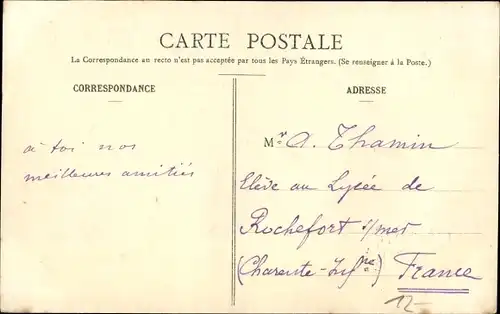 CARTE POSTALE
La Correspondance au recto n'est pas acceptée par tous les Pays Étrangers. (Se renseigner à la Poste.)
CORRESPONDANCE
à toi nos
meilleures amitiés
ADRESSE
Mr A. Thamin
Elève au Lycée de
Rochefort s/mer
(Charente-Infre)
France
12-